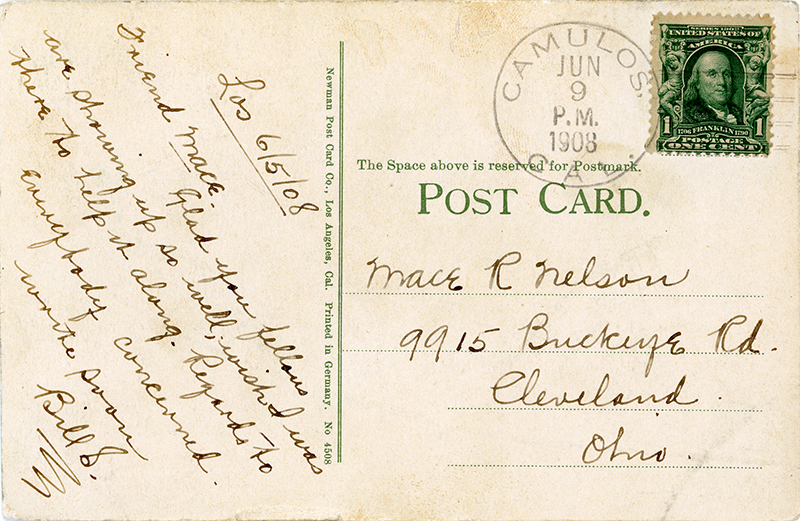 Los 6/5/08
Friend Mace.
Glad you fellows
are showing up so well, wish I was
there to help it along. Regards to
Everybody concerned.
write soon
Bill S.
Newman Post Card Co., Los Angeles, Cal. Printed in Germany. No 4508
CAMULOS,
JUN
9
P.M.
1908
CAL.
SERIES 1902
UNITED STATES OF
AMERICA
1 1706 FRANKLIN 1790 1
POSTAGE
ONE CENT
The Space above is reserved for Postmark.
POST CARD.
Mace R Nelson
9915 Buckeye Rd.
Cleveland.
Ohio.